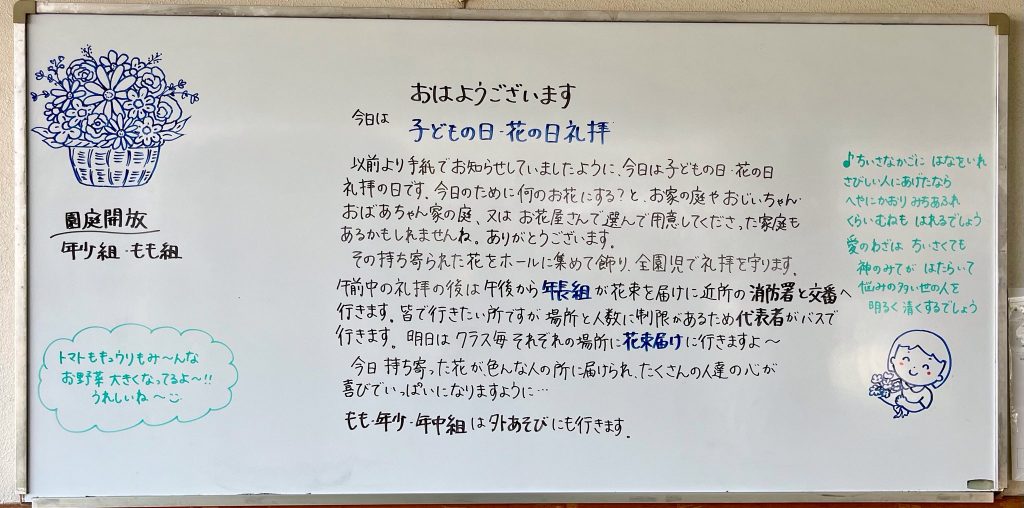 おはようございます
今日は
子どもの日・花の日礼拝
以前より手紙でお知らせしていましたように、今日は子どもの日・花の日
礼拝の日です。今日のために何のお花にする？と、お家の庭やおじいちゃん・
おばあちゃん家の庭、又はお花屋さんで選んで用意してくださった家庭も
あるかもしれませんね。ありがとうございます。
その持ち寄られた花をホールに集めて飾り、全園児で礼拝を守ります。
午前中の礼拝の後は午後から年長組が花束を届けに近所の消防署と交番へ
行きます。皆で行きたい所ですが場所と人数に制限があるため代表者がバスで
行きます。明日はクラス毎それぞれの場所に花束届けに行きますよ～
今日持ち寄った花が、色んな人の所に届けられ、たくさんの人達の心が
喜びでいっぱいになりますように…
もも・年少・年中組は外あそびにも行きます。
園庭開放
年少組・もも組
トマトもキュウリもみ～んな
お野菜大きくなってるよ～!!
うれしいね～
♪ちいさなかごに はなをいれ
さびしい人にあげたなら
へやにかおり みちあふれ
くらいむねも はれるでしょう
愛のわざは ちいさくても
神のみてが はたらいて
悩みの多い世の人を
明るく清くするでしょう